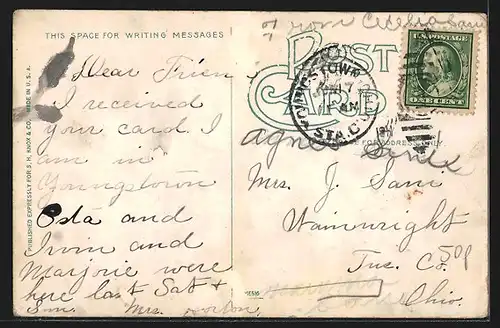 From Cecelia
THIS SPACE FOR WRITING MESSAGES
POST CARD
U.S. POSTAGE
ONE CENT
YOUNGSTOWN
STA. C.
Dear Frien
I received
your card. I
am in
Youngstown
Osta and
Irvin and
Marjorie were
here last Sat +
Sun. Mrs.
PUBLISHED EXPRESSLY FOR S. H. KNOX & CO. MADE IN U.S.A.
FOR ADDRESS ONLY.
Mrs. J. Sani
Wainwright
Tus. Co.
Ohio.
50p